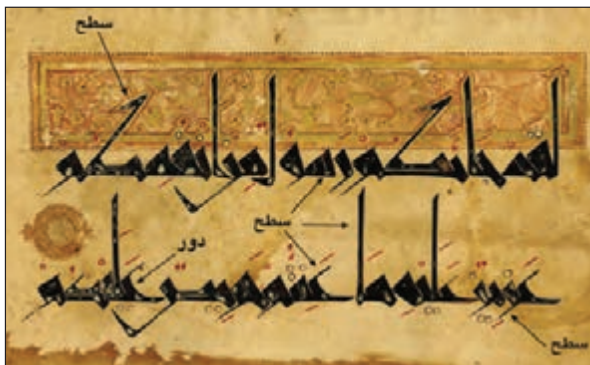 سطح
لقد جاءكم رسول من انفسكم
سطح
دور
عزيز عليه ما عنتم حريص عليكم
سطح